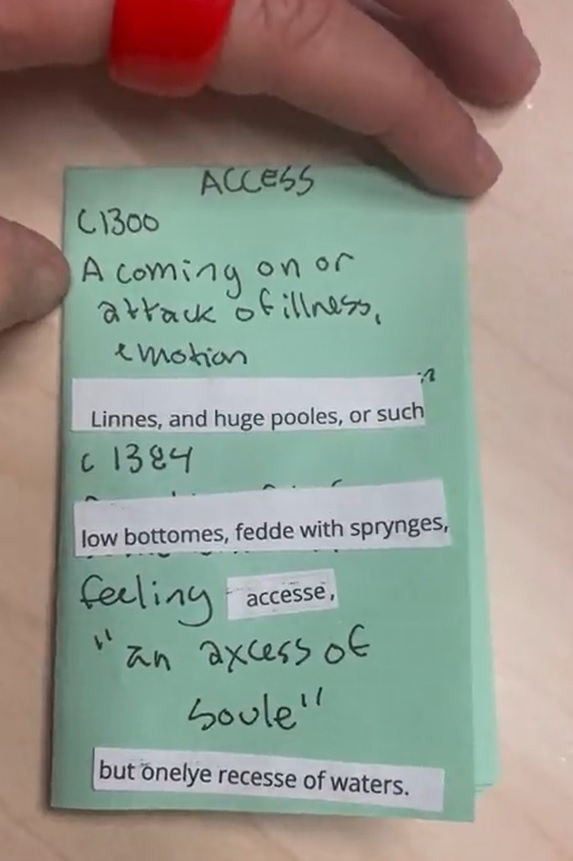 ACCESS
C1300
A coming on or
attack of illness,
emotion
Linnes, and huge pooles, or such
c 1384
low bottomes, fedde with sprynges,
feeling accesse,
"an axcess of
soule"
but onelye recesse of waters.